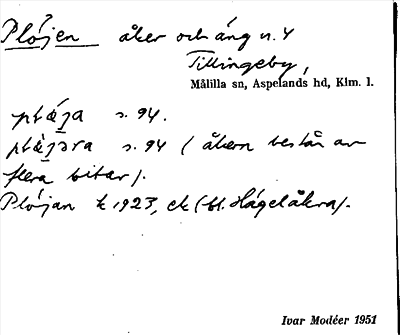 Plöjen åker och äng n. 4
Tillingeby,
Målilla sn, Aspelands hd, Klm. l.
plœ́ja s. 94.
plœ́jəra s. 94 (åkern består av
flera bitar).
Plöjan k 1923, ek (bl. Hagelåkra).
Ivar Modéer 1951